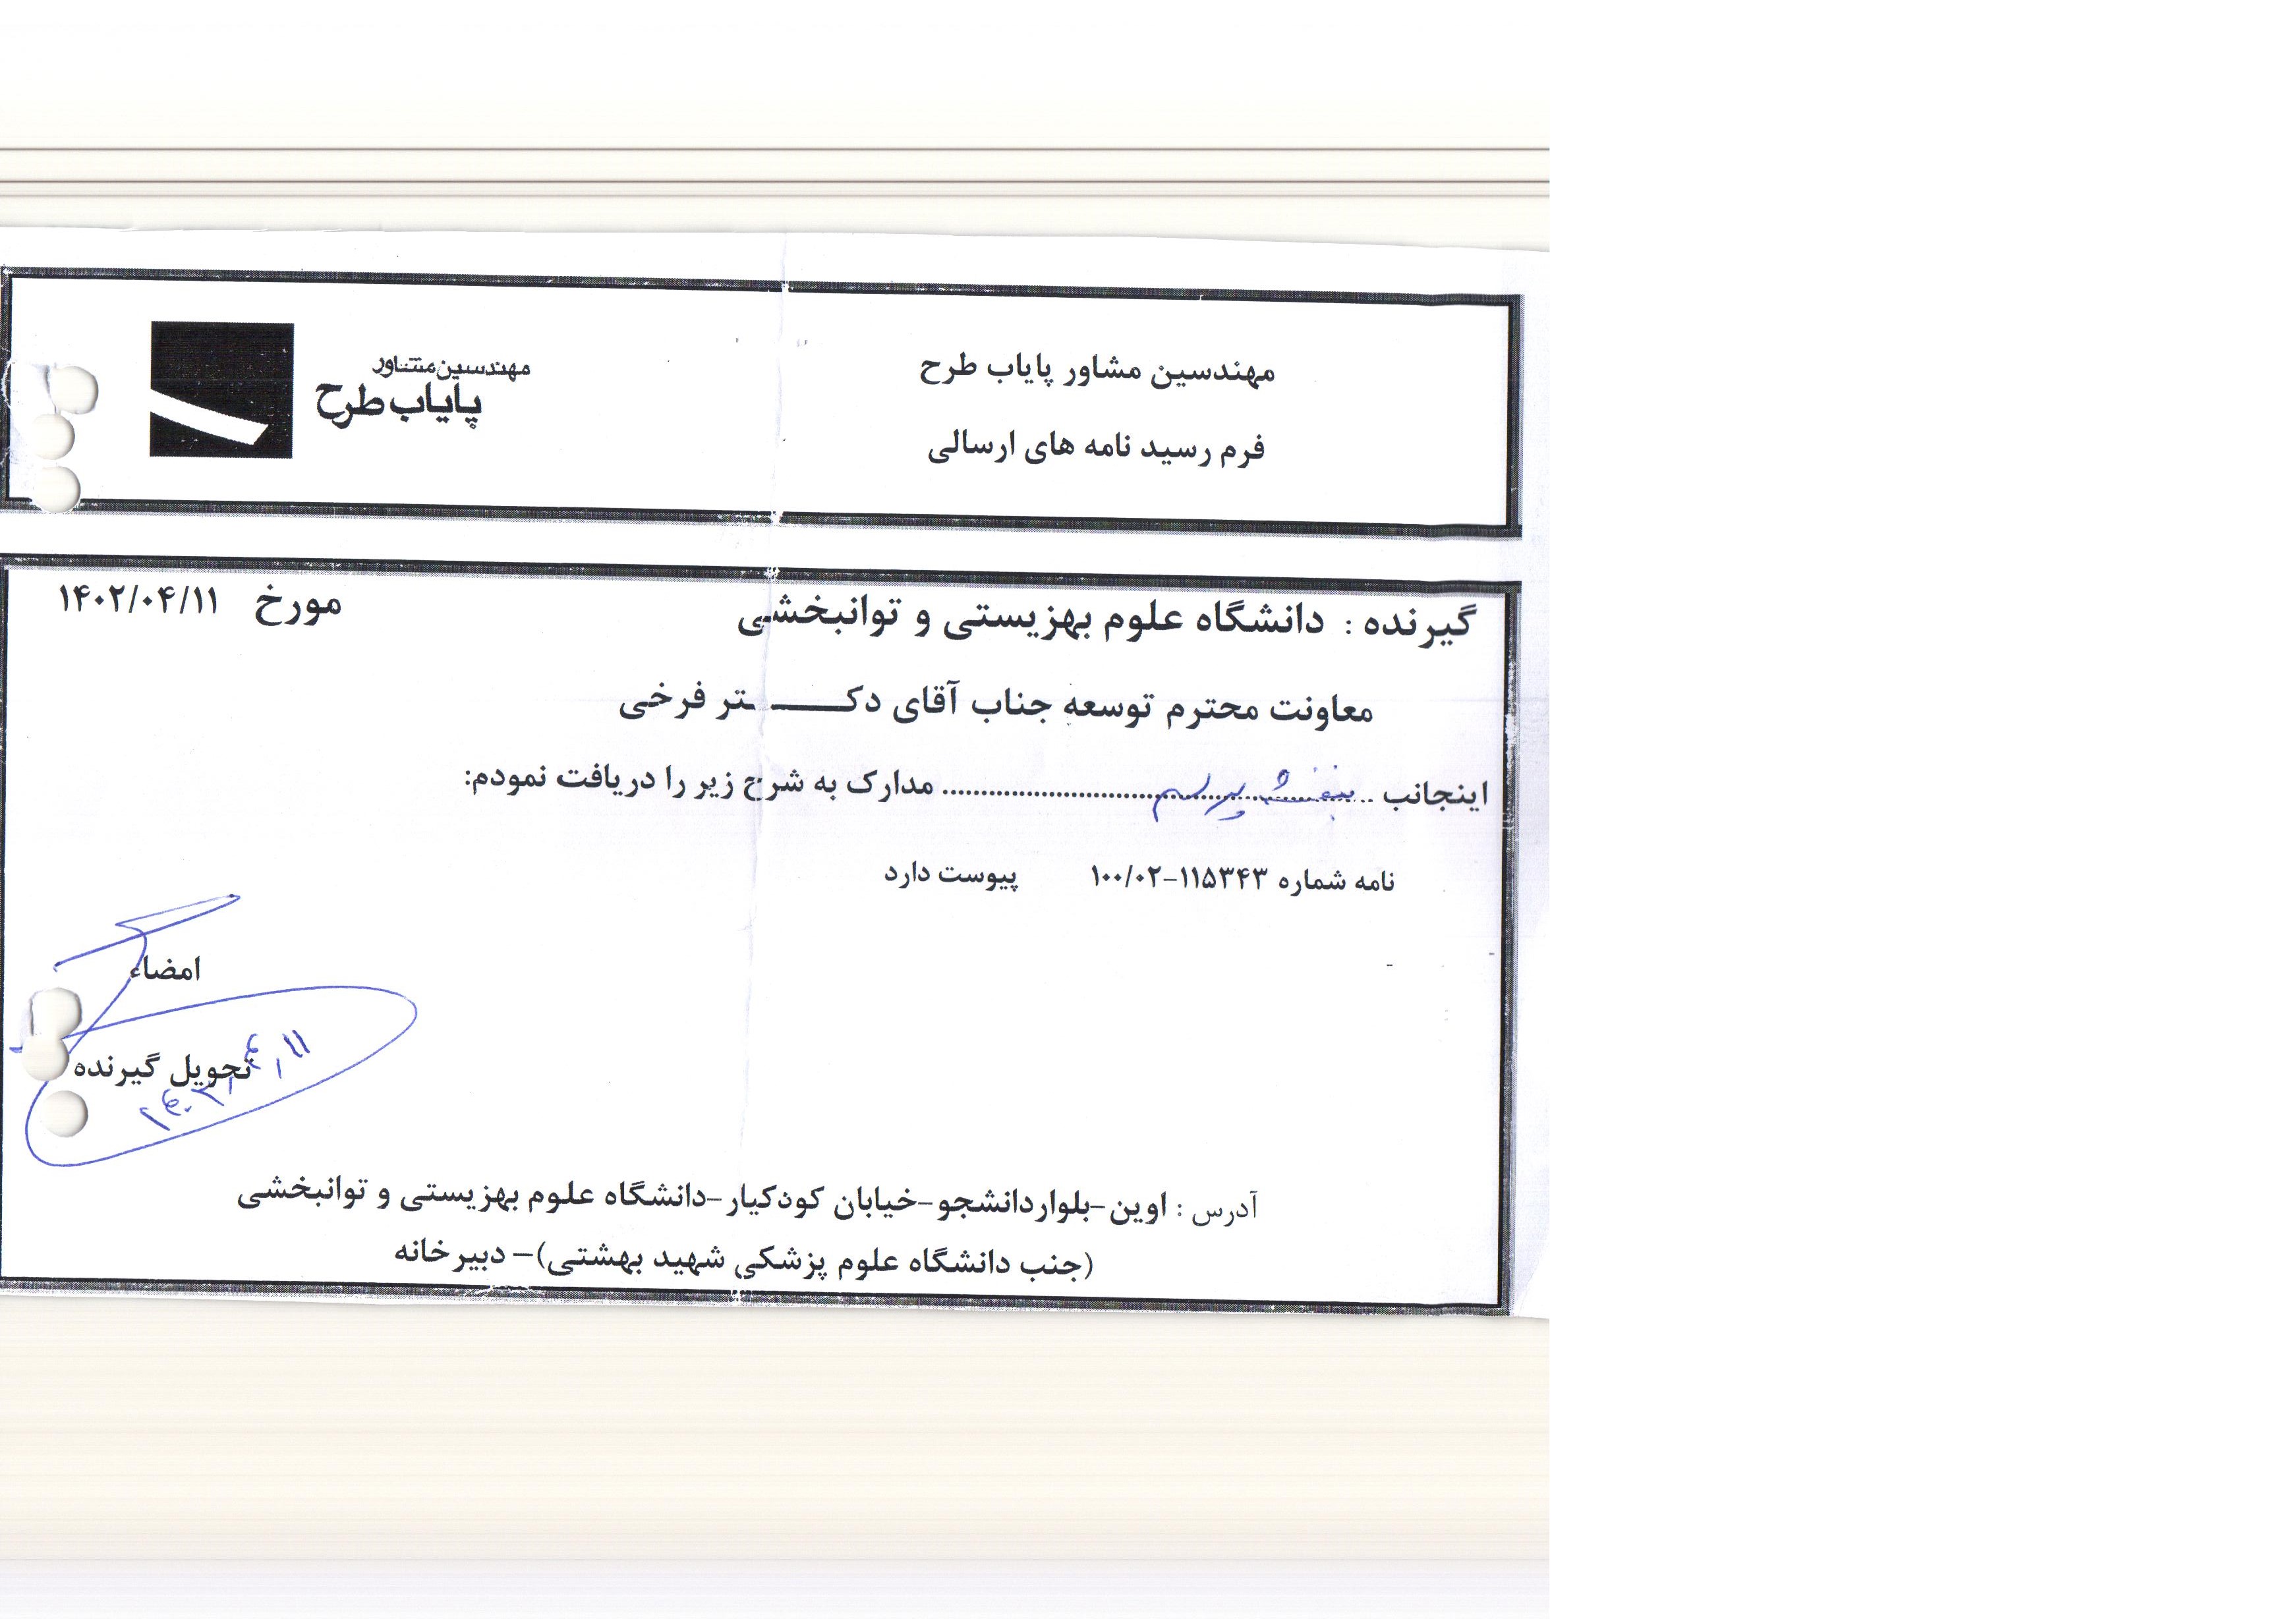 مهندسین مشاور پایاب طرح
فرم رسید نامه های ارسالی
مهندسین مشاور
پایاب طرح
گیرنده : دانشگاه علوم بهزیستی و توانبخشی مورخ ۱۴۰۲/۰۴/۱۱
معاونت محترم توسعه جناب آقای دکـــــتر فرخی
اینجانب بنفشه ........................................ مدارک به شرح زیر را دریافت نمودم:
نامه شماره ۱۱۵۳۴۳-۱۰۰/۰۲ پیوست دارد
-
امضاء
تحویل گیرنده
۱۴۰۲/۴/۱۱
آدرس : اوین-بلواردانشجو-خیابان کودکیار-دانشگاه علوم بهزیستی و توانبخشی
(جنب دانشگاه علوم پزشکی شهید بهشتی)- دبیرخانه